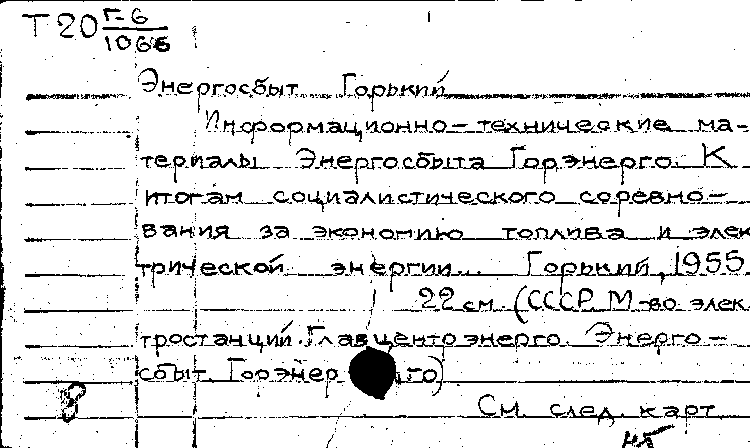 Т20 Г-6
1066
Энергосбыт Горький
Информационно-технические ма-
териалы Энергосбыта Горэнерго. К
итогам социалистического соревно-
вания за экономию топлива и элек
трической энергии... Горький, 1955
22 см. (СССР. М-во элек
тростанций. Главцентроэнерго. Энерго-
сбыт. Горэнер го)
8
См. след. карт